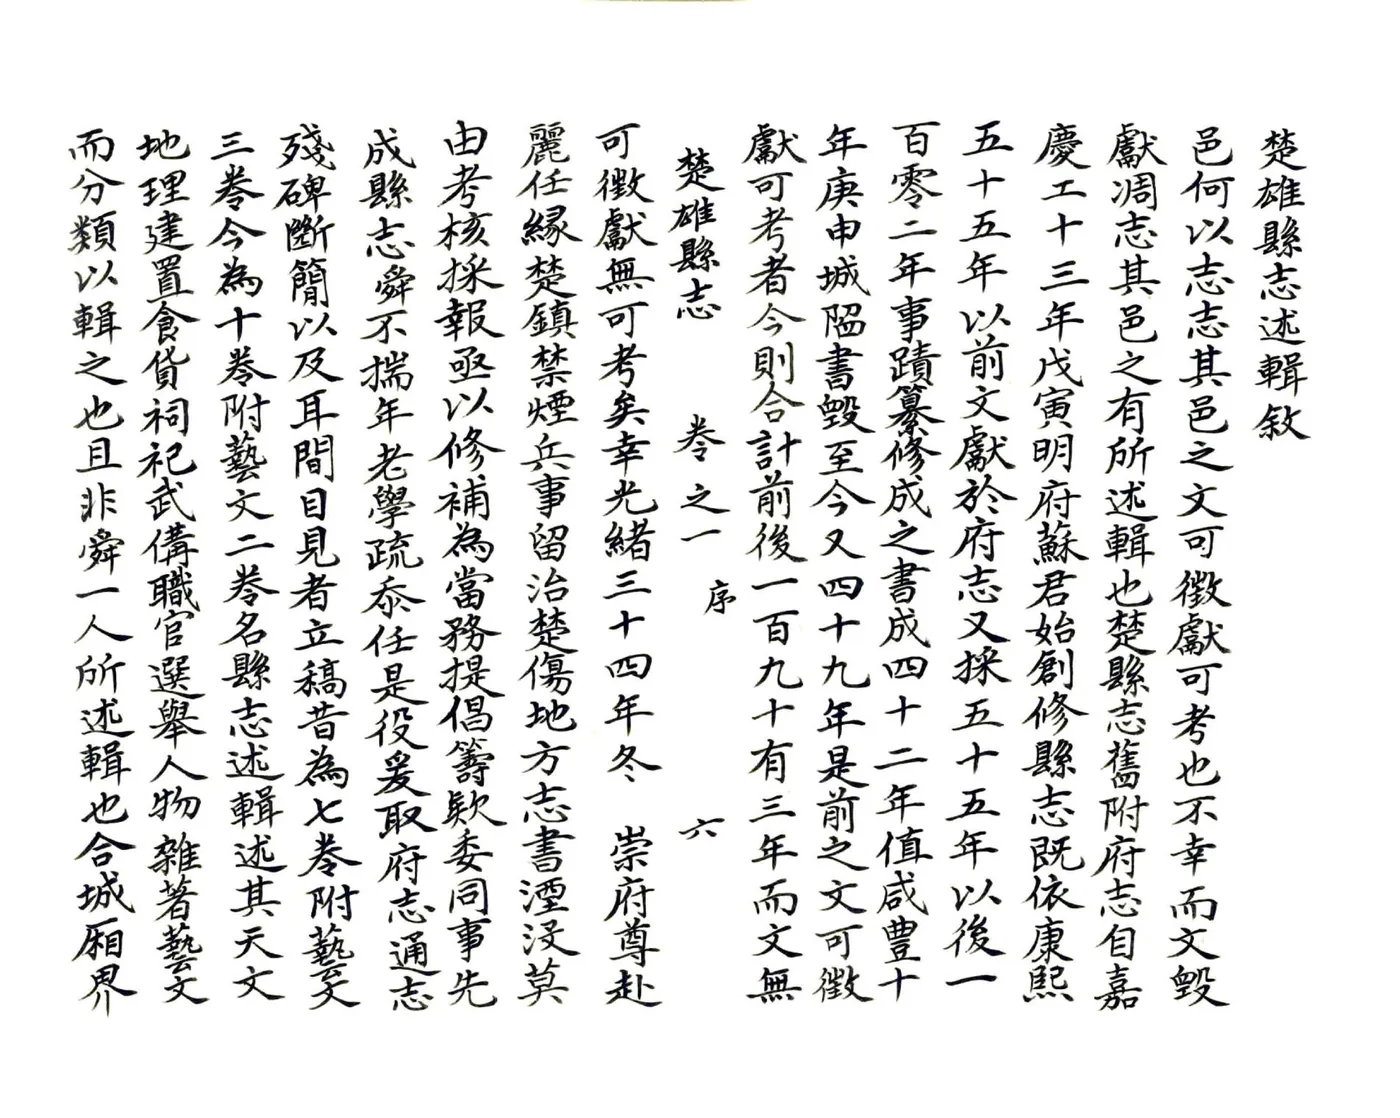 楚雄縣志述輯敘
邑何以志志其邑之文可徵獻可考也不幸而文毀
獻凋志其邑之有所述輯也楚縣志舊附府志自嘉
慶工十三年戊寅明府蘇君始創修縣志既依康熙
五十五年以前文獻於府志又採五十五年以後一
百零二年事蹟纂修成之書成四十二年值咸豊十
年庚申城陷書毀至今又四十九年是前之文可徵
獻可考者今則合計前後一百九十有三年而文無
楚雄縣志 卷之一 序 六
可徵獻無可考矣幸光緒三十四年冬 崇府尊赴
麗任緣楚鎮禁煙兵事留治楚傷地方志書湮沒莫
由考核採報亟以修補為當務提倡籌欵委同事先
成縣志舜不揣年老學疏忝任是役爰取府志通志
殘碑斷簡以及耳間目見者立稿昔為七卷附藝文
三卷今為十卷附藝文二卷名縣志述輯述其天文
地理建置食貨祠祀武備職官選舉人物雜著藝文
而分類以輯之也且非舜一人所述輯也合城廂界